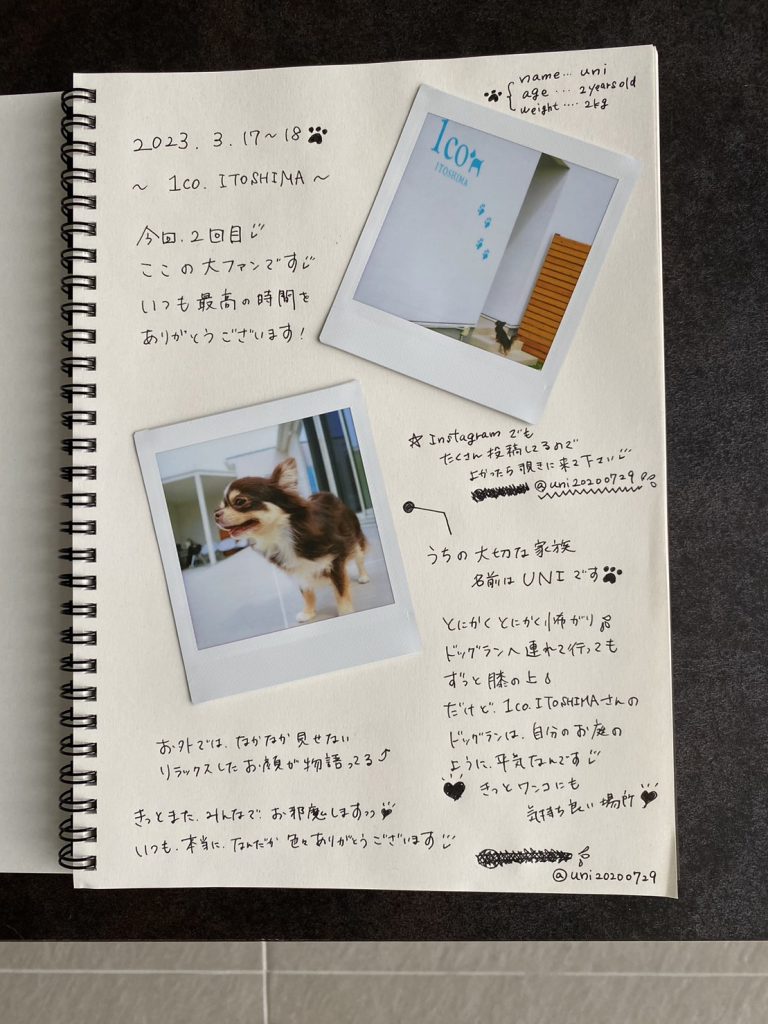 name… uni
age … 2years old
weight …. 2kg
2023. 3. 17〜18
〜 1co. ITOSHIMA 〜
今回、2回目
ここの大ファンです
いつも最高の時間を
ありがとうございます!
1co
ITOSHIMA
☆ Instagram でも
たくさん投稿してるので
よかったら覗きに来て下さい
@uni20200729
うちの大切な家族
名前は UNI です
とにかくとにかく怖がり
ドッグランへ連れて行っても
ずっと膝の上
だけど、1co. ITOSHIMAさんの
ドッグランは、自分のお庭の
ように、平気なんです
きっとワンコにも
気持ち良い場所
お外では、なかなか見せない
リラックスしたお顔が物語ってる
きっとまた、みんなで、お邪魔しますっっ
いつも、本当に、なんだか色々ありがとうございます
@uni20200729